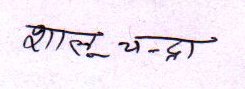 शालू चन्द्रा